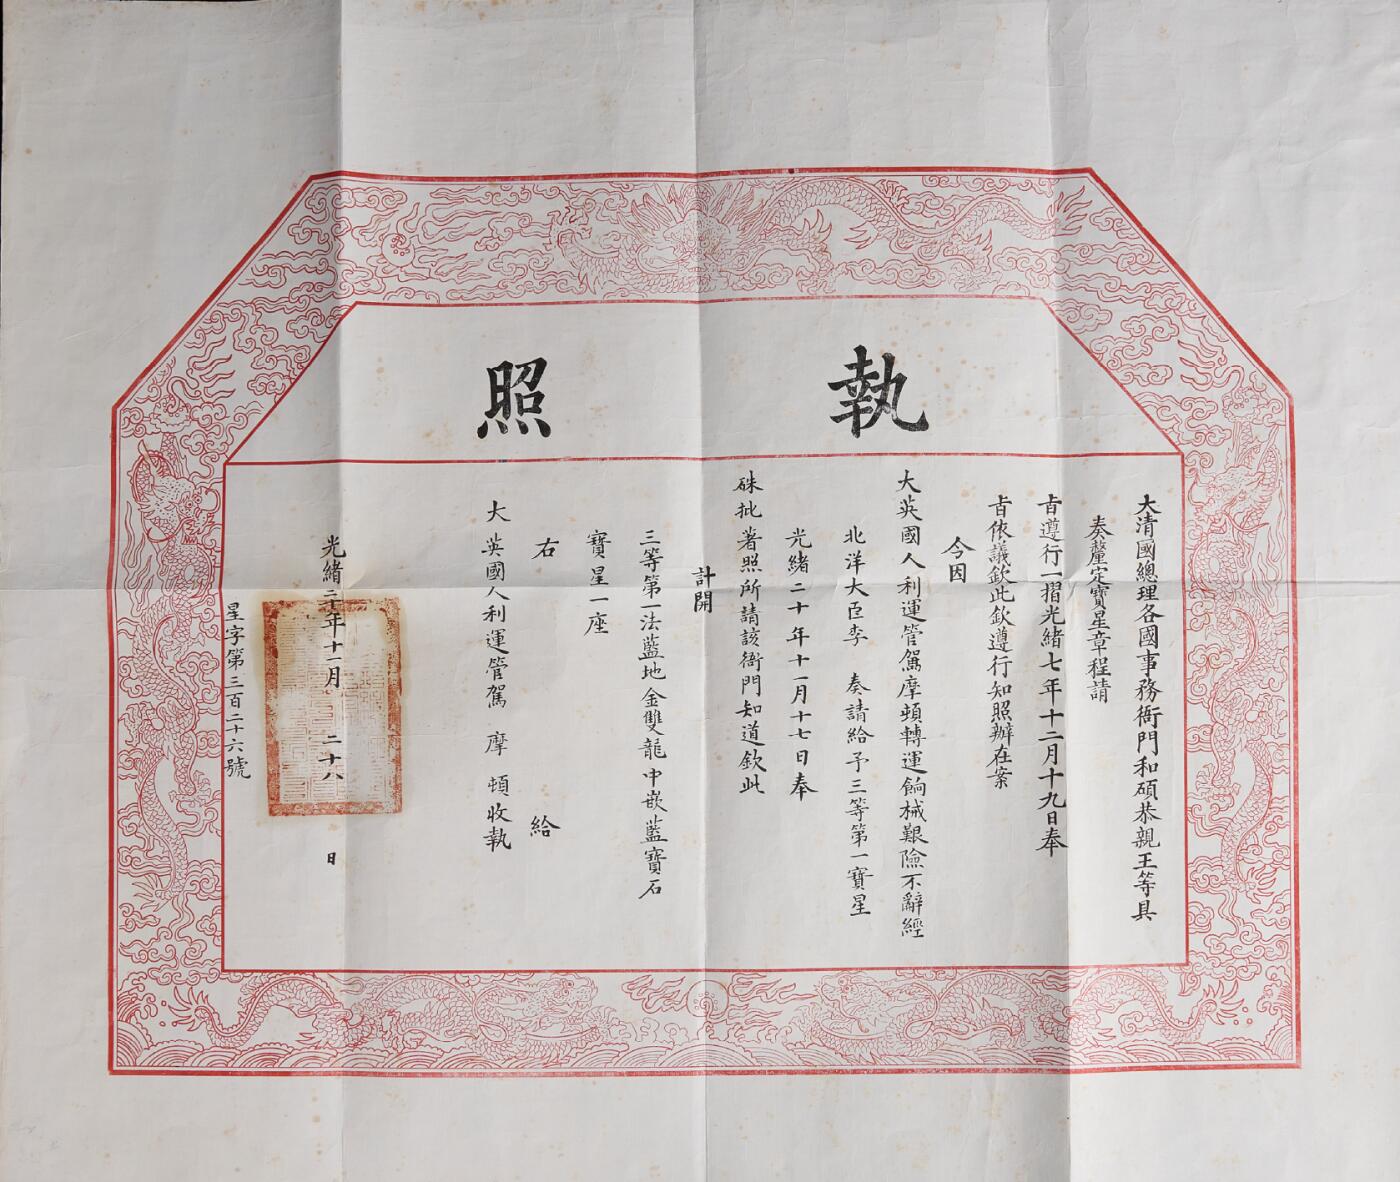 執照
大清國總理各國事務衙門和碩恭親王等具
奏釐定寶星章程請
旨遵行一摺光緒七年十二月十九日奉
旨依議欽此欽遵行知照辦在案
今因
大英國人利運管駕摩頓轉運餉械艱險不辭經
北洋大臣李 奏請給予三等第一寶星
光緒二十年十一月十七日奉
硃批著照所請該衙門知道欽此
計開
三等第一法藍地金雙龍中嵌藍寶石
寶星一座
右 給
大英國人利運管駕 摩頓收執
光緒二十年十一月 二十八 日
星字第三百二十六號